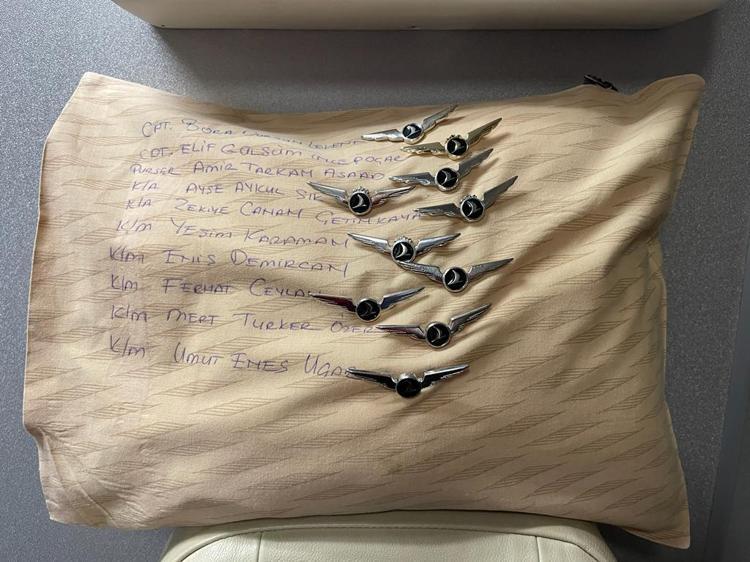 CPT. BORA
CPT. ELIF GÜLSÜM
PURSER AMIR TARKAM ASAAD
K/A AYSE AYKUL
K/A ZEKIYE CANAM
K/M YESIM KARAMAM
K/M ENIS DEMIRCAM
K/M FERHAT CEYLAN
K/M MERT TURKER OZER
K/M UMUT ENES